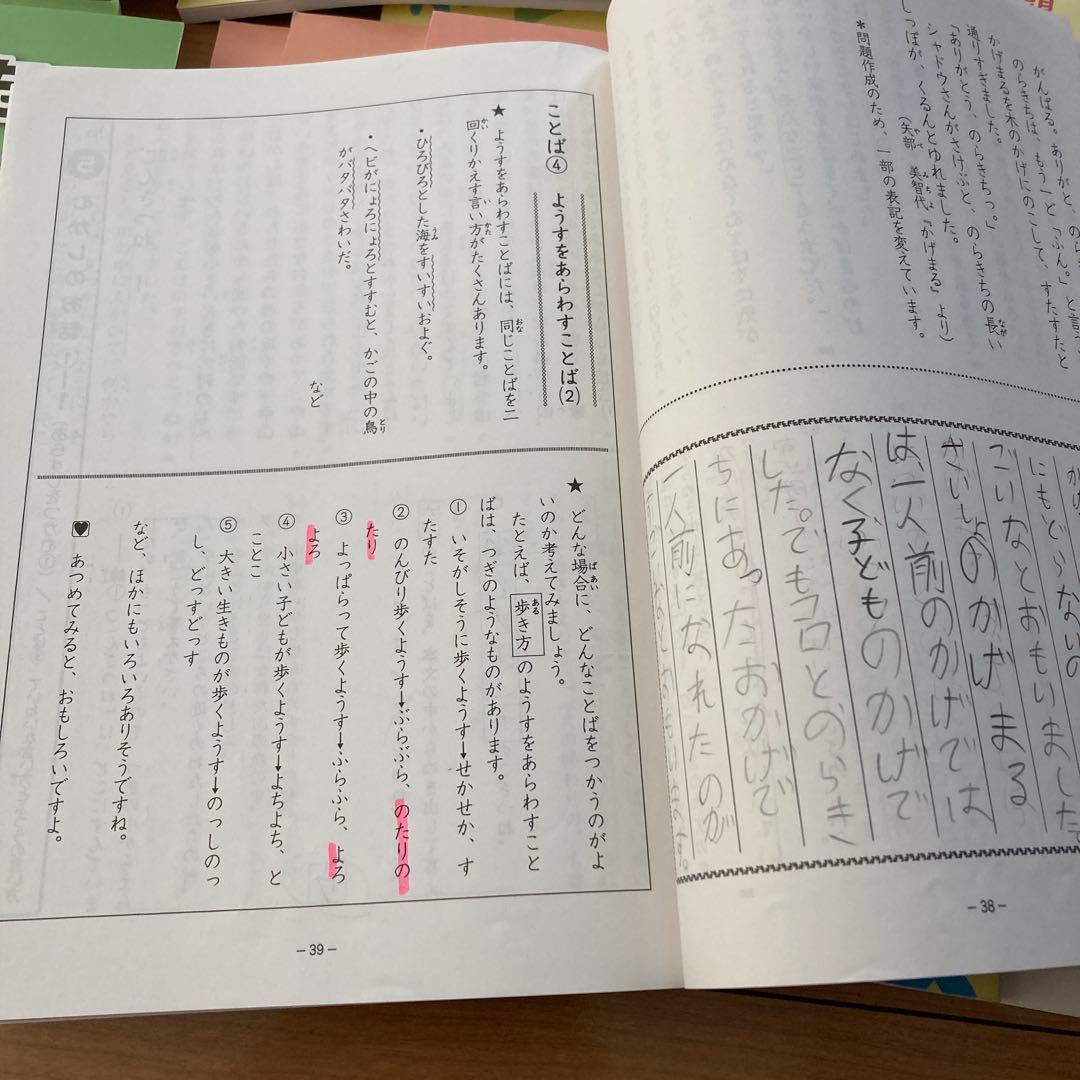 がんばる。ありがと、のら
のらきちは、もう」と「ふん。」と言
かげまるを木のかげにのこして、すたすたと
通りすぎました。
「ありがとう、のらきちっ。」
シャドウさんがさけぶと、のらきちの長い
しっぽが、くるんとゆれました。
(矢部 美智代「かげまる」より)
＊問題作成のため、一部の表記を変えています。
にもどらないの
ごいなとおもいました。
さいしょのかげまる
は、一人前のかげでは
なく子どものかげで
した。でもコロとのらき
ちにあったおかげで
一人前になれたのが
－38－
ことば④ ようすをあらわすことば(2)
★ ようすをあらわすことばには、同じことばを二
回くりかえす言い方がたくさんあります。
・ひろびろとした海をすいすいおよぐ。
・ヘビがにょろにょろとすすむと、かごの中の鳥
がバタバタさわいだ。
など
★ どんな場合に、どんなことばをつかうのがよ
いのか考えてみましょう。
たとえば、歩き方のようすをあらわすこと
ばは、つぎのようなものがあります。
① いそがしそうに歩くようす→せかせか、す
たすた
② のんびり歩くようす→ぶらぶら、のたりの
たり
③ よっぱらって歩くようす→ふらふら、よろ
よろ
④ 小さい子どもが歩くようす→よちよち、と
ことこ
⑤ 大きい生きものが歩くようす→のっしのっ
し、どっすどっす
など、ほかにもいろいろありそうですね。
あつめてみると、おもしろいですよ。
－39－